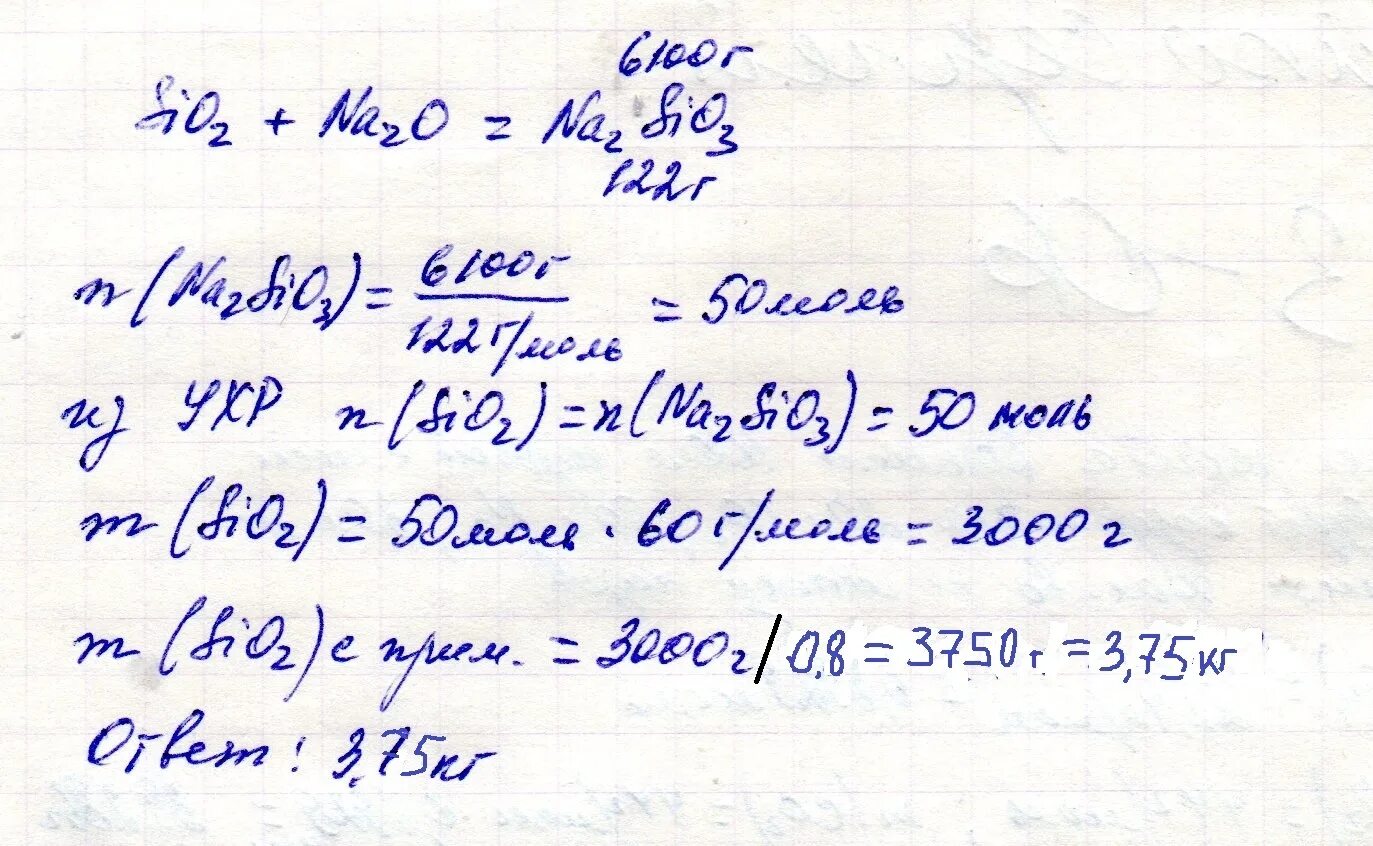 6100г
SiO₂ + Na₂O = Na₂SiO₃
122г
n(Na₂SiO₃) = 6100г / 122г/моль = 50моль
из УХР n(SiO₂) = n(Na₂SiO₃) = 50 моль
m(SiO₂) = 50моль · 60г/моль = 3000г
m(SiO₂) с прим. = 3000г/0,8 = 3750г = 3,75кг
Ответ: 3,75кг